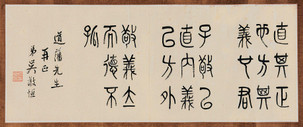 直其正
也方其
義也君
子敬以
直內義
以方外
敬義立
而德不
孤
道藩先生
正
弟吳敬恆